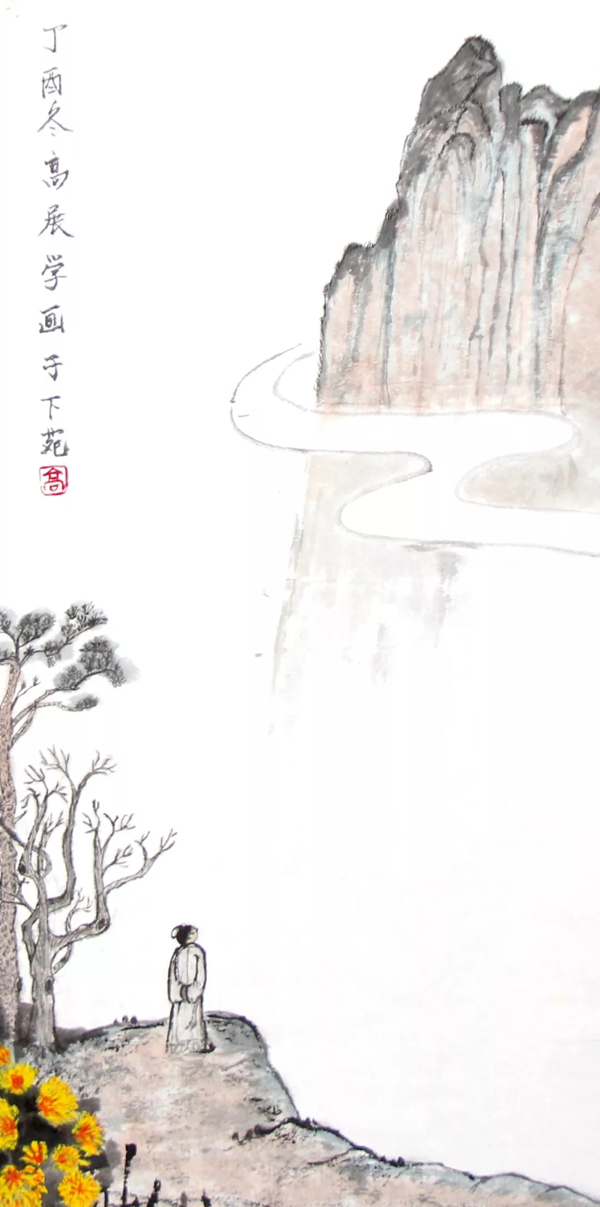 丁酉冬高展学画于下苑
高